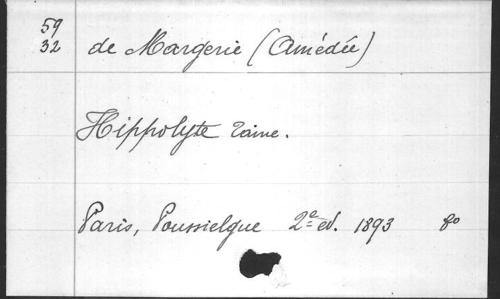 59
32 de Margerie (Amédée)
Hippolyte Taine.
Paris, Poussielgue 2e ed. 1893 8o